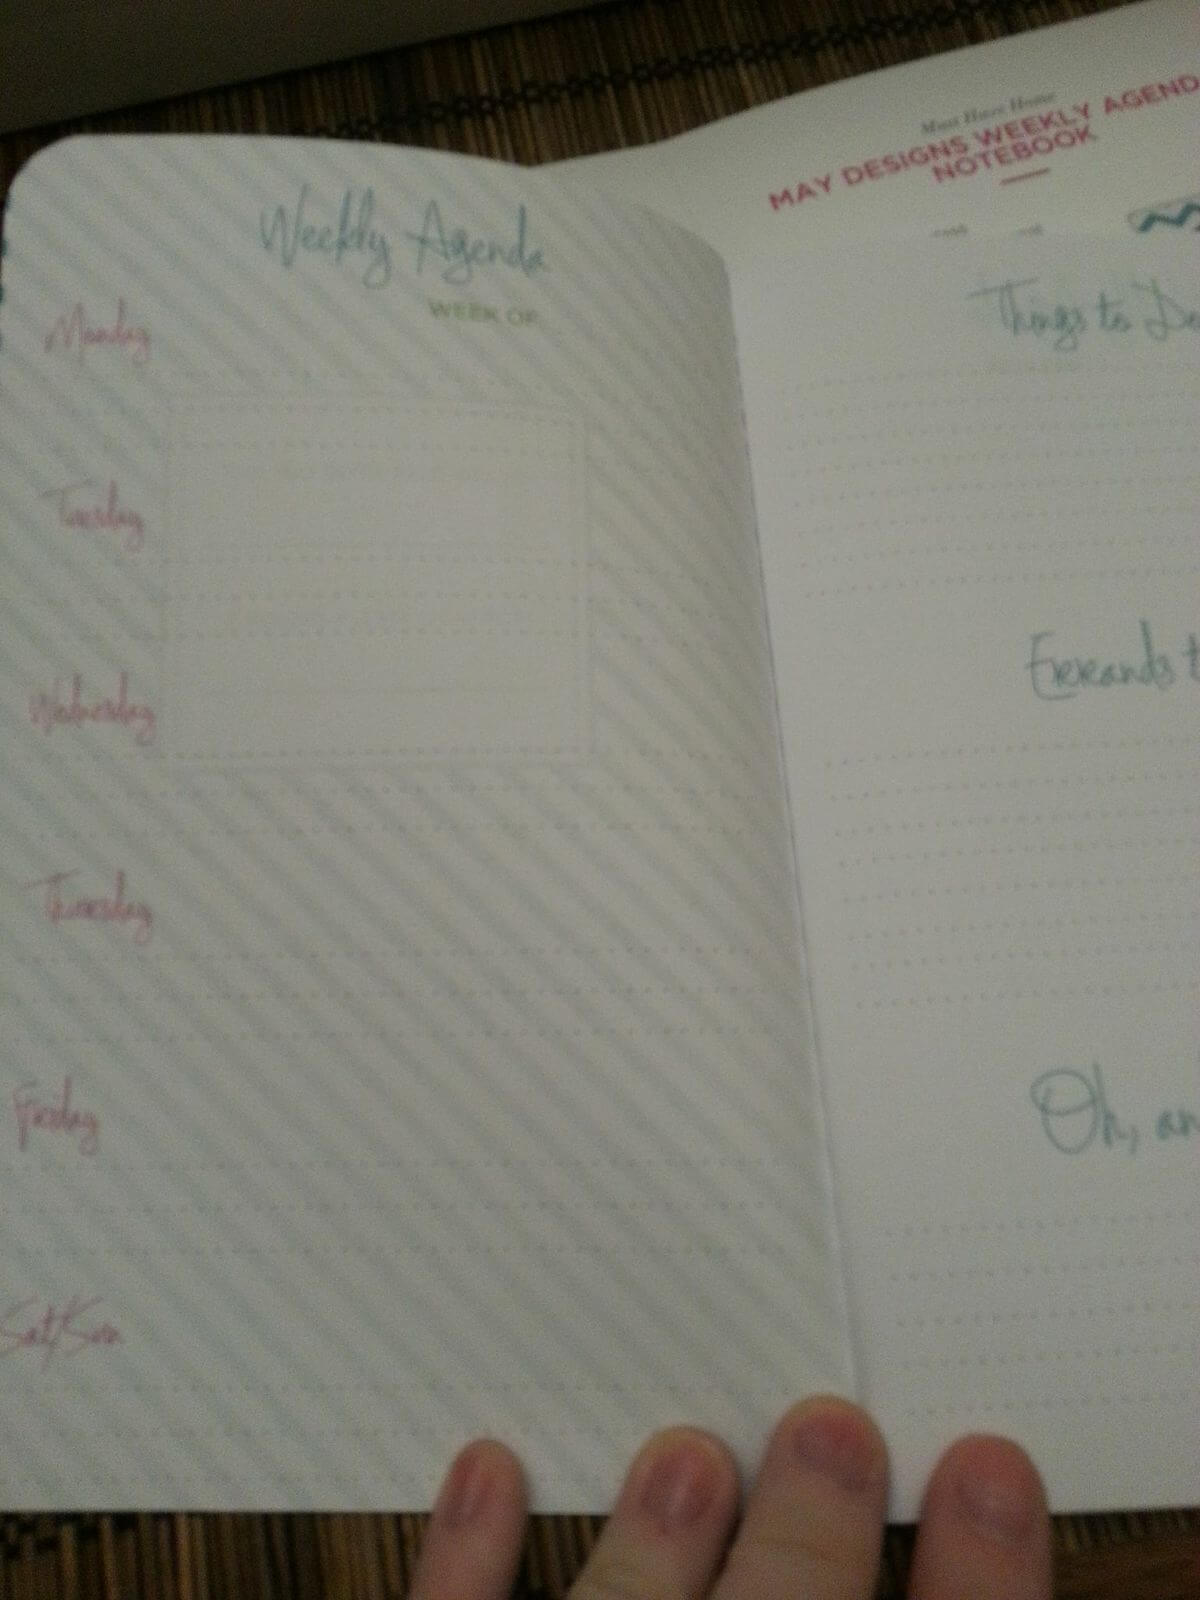 Must Have Home
MAY DESIGNS WEEKLY AGEND
NOTEBOOK
Weekly Agenda
WEEK OF
Monday
Tuesday
Wednesday
Thursday
Friday
Sat/Sun
Things to Do
Errands t
Oh, an